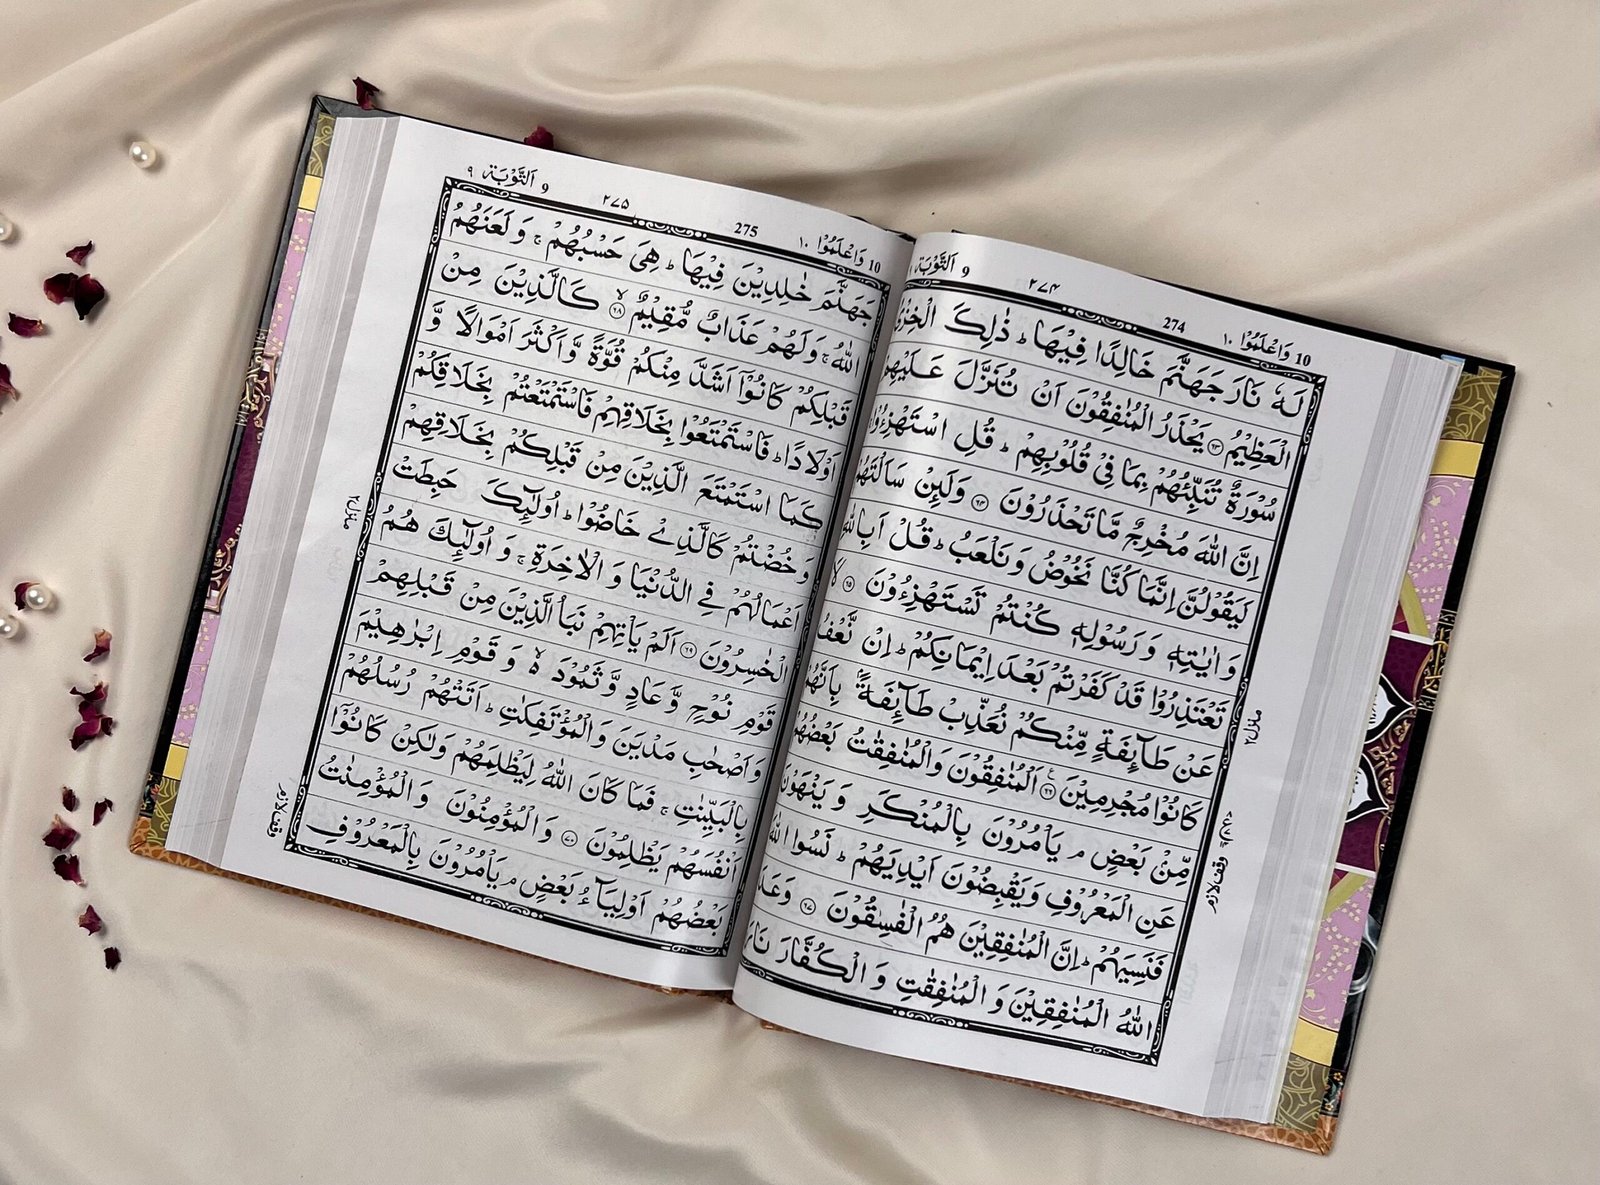 10 وَاعْلَمُوْۤا ١٠ 274 ٢٧٤ 9 اَلتَّوْبَة
لَهٗ نَارَ جَهَنَّمَ خَالِدًا فِيْهَا ؕ ذٰلِكَ الْخِزْىُ
الْعَظِيْمُ ﴿٦٣﴾ يَحْذَرُ الْمُنٰفِقُوْنَ اَنْ تُنَزَّلَ عَلَيْهِمْ
سُوْرَةٌ تُنَبِّئُهُمْ بِمَا فِىْ قُلُوْبِهِمْ ؕ قُلِ اسْتَهْزِءُوْا
اِنَّ اللّٰهَ مُخْرِجٌ مَّا تَحْذَرُوْنَ ﴿٦٤﴾ وَلَئِنْ سَاَلْتَهُمْ
لَيَقُوْلُنَّ اِنَّمَا كُنَّا نَخُوْضُ وَنَلْعَبُ ؕ قُلْ اَبِاللّٰهِ
وَاٰيٰتِهٖ وَرَسُوْلِهٖ كُنْتُمْ تَسْتَهْزِءُوْنَ ﴿٦٥﴾ لَا
تَعْتَذِرُوْا قَدْ كَفَرْتُمْ بَعْدَ اِيْمَانِكُمْ ؕ اِنْ نَّعْفُ
عَنْ طَآئِفَةٍ مِّنْكُمْ نُعَذِّبْ طَآئِفَةًۢ بِاَنَّهُمْ
كَانُوْا مُجْرِمِيْنَ ﴿٦٦﴾ اَلْمُنٰفِقُوْنَ وَالْمُنٰفِقٰتُ بَعْضُهُمْ
مِّنْۢ بَعْضٍ ۘ يَاْمُرُوْنَ بِالْمُنْكَرِ وَيَنْهَوْنَ
عَنِ الْمَعْرُوْفِ وَيَقْبِضُوْنَ اَيْدِيَهُمْ ؕ نَسُوا اللّٰهَ
فَنَسِيَهُمْ ؕ اِنَّ الْمُنٰفِقِيْنَ هُمُ الْفٰسِقُوْنَ ﴿٦٧﴾ وَعَدَ
اللّٰهُ الْمُنٰفِقِيْنَ وَالْمُنٰفِقٰتِ وَالْكُفَّارَ نَارَ
منزل٢
وقف لازم
10 وَاعْلَمُوْۤا ١٠ 275 ٢٧٥ 9 اَلتَّوْبَة ٩
جَهَنَّمَ خٰلِدِيْنَ فِيْهَا ؕ هِىَ حَسْبُهُمْ ۚ وَلَعَنَهُمُ
اللّٰهُ ۚ وَلَهُمْ عَذَابٌ مُّقِيْمٌ ﴿٦٨﴾ۙ كَالَّذِيْنَ مِنْ
قَبْلِكُمْ كَانُوْۤا اَشَدَّ مِنْكُمْ قُوَّةً وَّاَكْثَرَ اَمْوَالًا وَّ
اَوْلَادًا ؕ فَاسْتَمْتَعُوْا بِخَلَاقِهِمْ فَاسْتَمْتَعْتُمْ بِخَلَاقِكُمْ
كَمَا اسْتَمْتَعَ الَّذِيْنَ مِنْ قَبْلِكُمْ بِخَلَاقِهِمْ
وَخُضْتُمْ كَالَّذِىْ خَاضُوْا ؕ اُولٰٓئِكَ حَبِطَتْ
اَعْمَالُهُمْ فِى الدُّنْيَا وَالْاٰخِرَةِ ۚ وَاُولٰٓئِكَ هُمُ
الْخٰسِرُوْنَ ﴿٦٩﴾ اَلَمْ يَاْتِهِمْ نَبَاُ الَّذِيْنَ مِنْ قَبْلِهِمْ
قَوْمِ نُوْحٍ وَّعَادٍ وَّثَمُوْدَ ۙ وَقَوْمِ اِبْرٰهِيْمَ
وَاَصْحٰبِ مَدْيَنَ وَالْمُؤْتَفِكٰتِ ؕ اَتَتْهُمْ رُسُلُهُمْ
بِالْبَيِّنٰتِ ۚ فَمَا كَانَ اللّٰهُ لِيَظْلِمَهُمْ وَلٰكِنْ كَانُوْۤا
اَنْفُسَهُمْ يَظْلِمُوْنَ ﴿٧٠﴾ وَالْمُؤْمِنُوْنَ وَالْمُؤْمِنٰتُ
بَعْضُهُمْ اَوْلِيَآءُ بَعْضٍ ۘ يَاْمُرُوْنَ بِالْمَعْرُوْفِ
منزل٢
وقف لازم